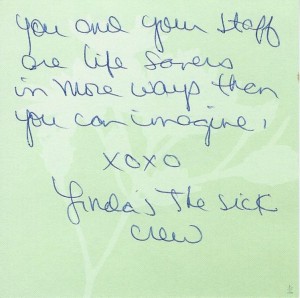 you and your staff
are life savers
in more ways then
you can imagine,
XOXO
Linda & The Sick
Crew